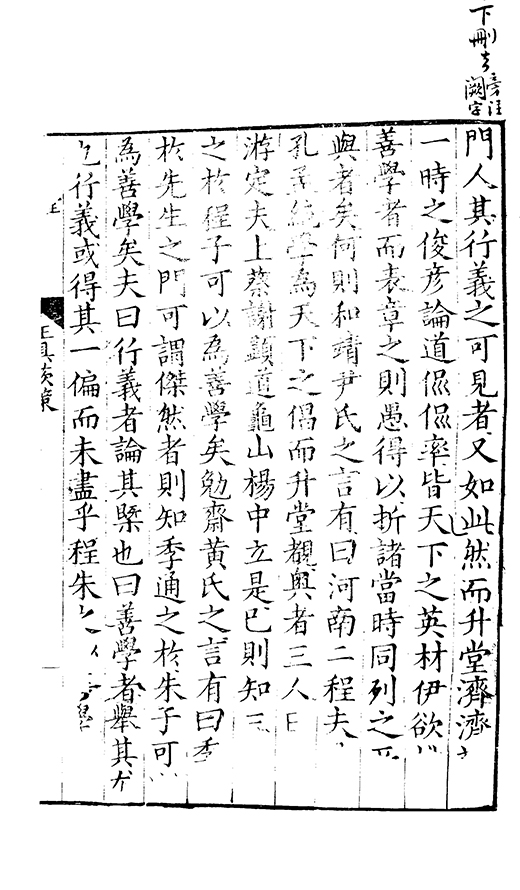 下刪去旁注
闕字
門人其行義之可見者又如此然而升堂濟濟
一時之俊彦論道侃侃率皆天下之英材伊欲
善學者而表章之則愚得以折諸當時同列之
與者矣何則和靖尹氏之言有曰河南二程夫
孔孟統學為天下之倡而升堂覩奥者三人曰
游定夫上蔡謝顯道龜山楊中立是已則知三
之於程子可以為善學矣勉齋黃氏之言有曰季
於先生之門可謂傑然者則知季通之於朱子可
為善學矣夫曰行義者論其槩也曰善學者舉其
行義或得其一偏而未盡乎程朱之